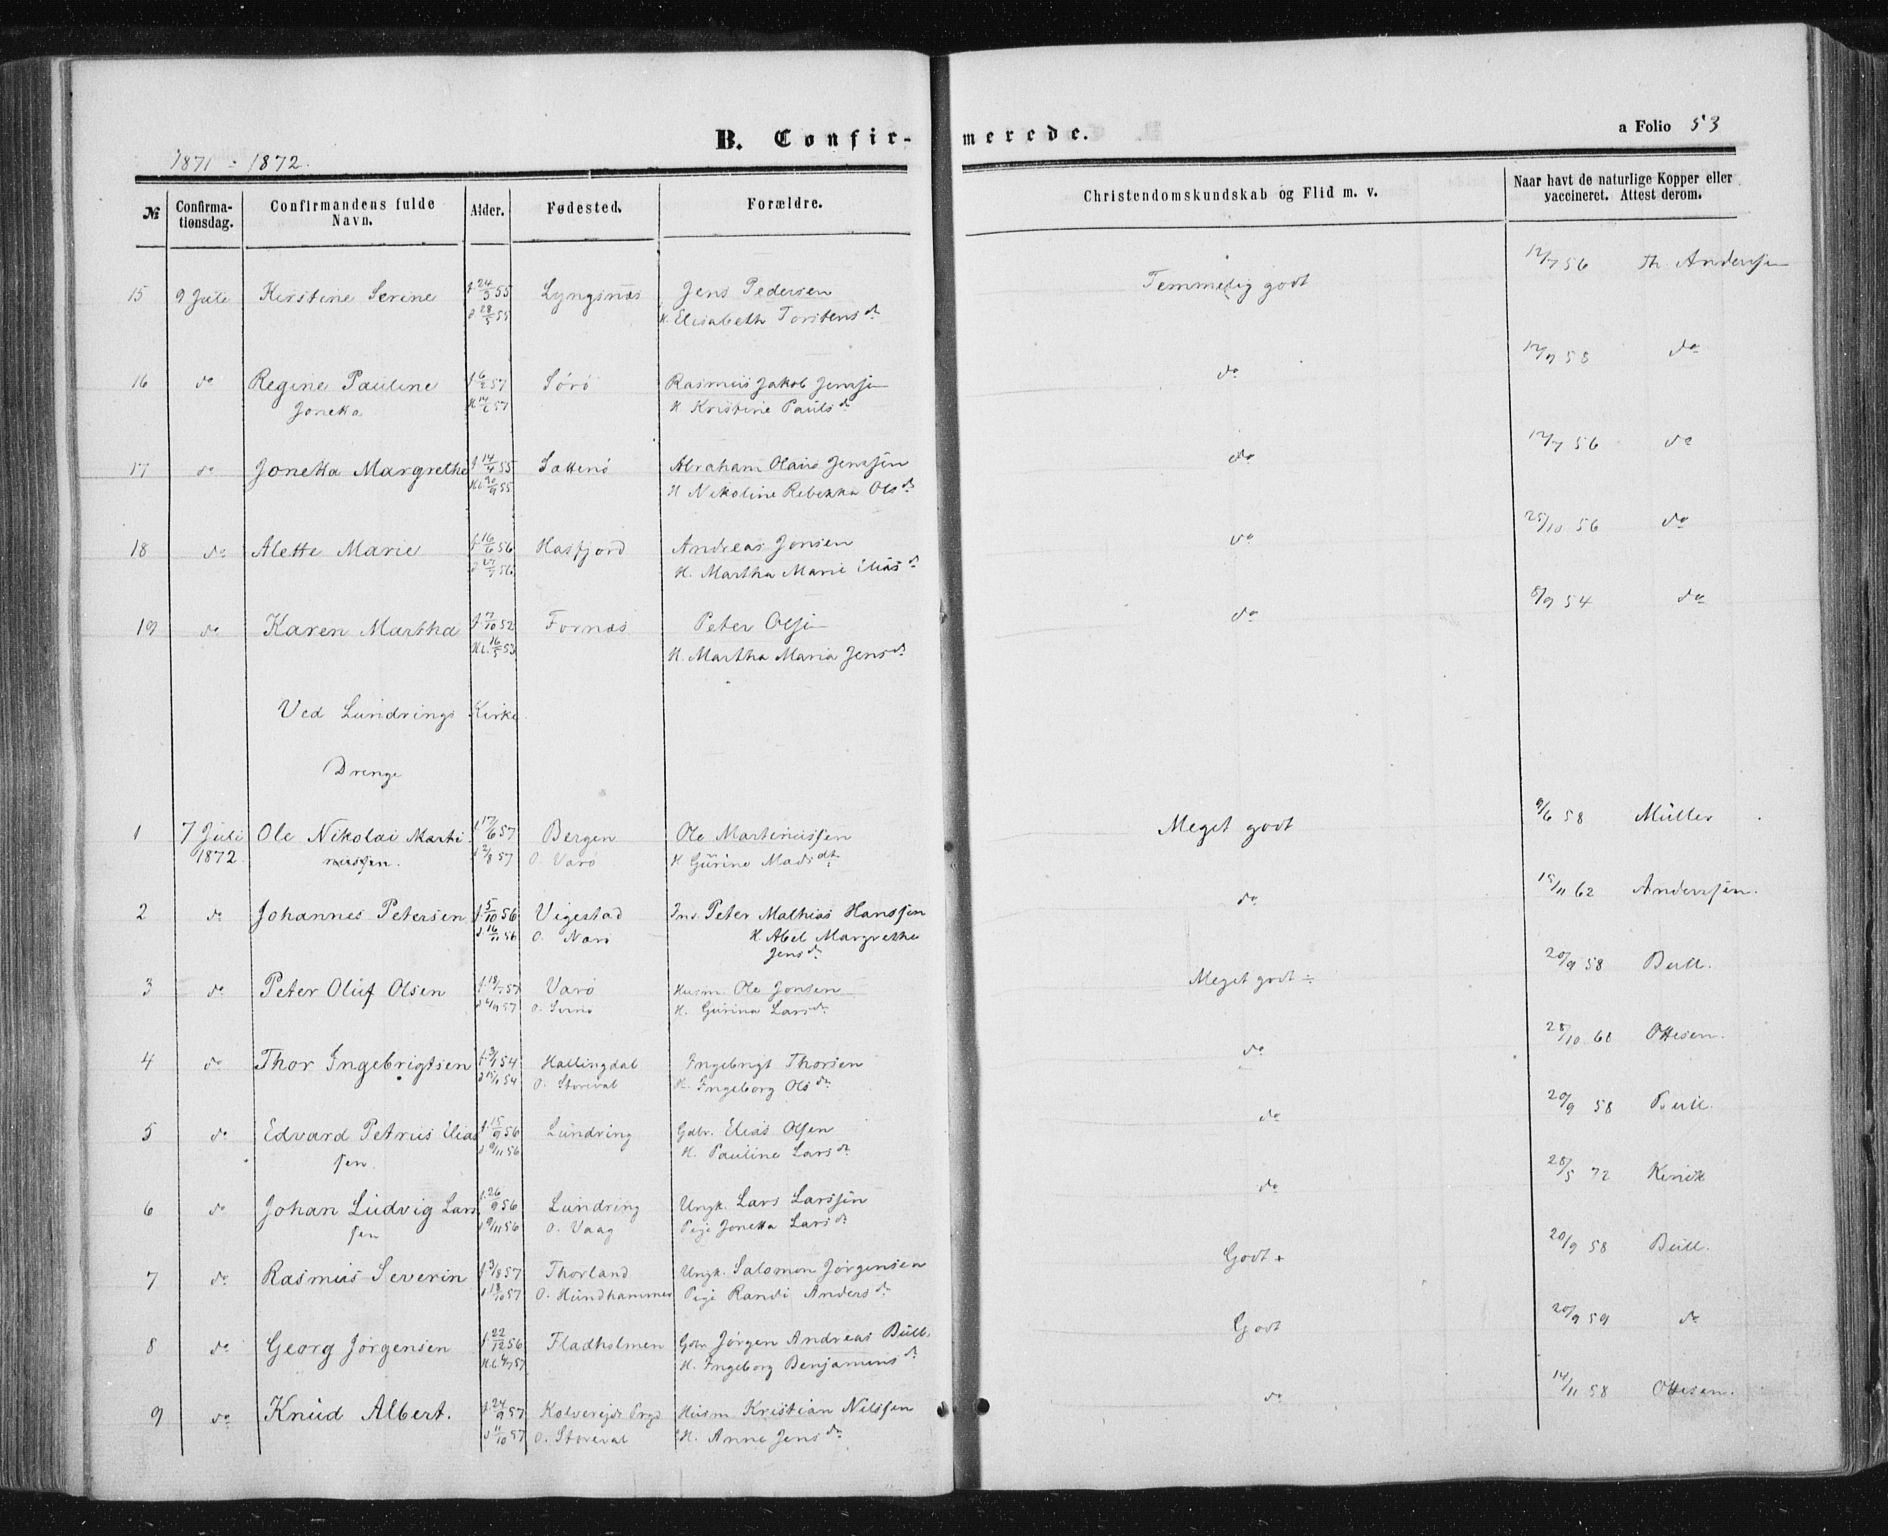 B. Confirmerede.
a Folio 53
1871 - 1872.
№ Confirmationsdag. Confirmandens fulde Navn. Alder. Fødested. Forældre. Christendomskundskab og Flid m. v. Naar havt de naturlige Kopper eller vaccineret. Attest derom.
15 9 Juli Kirstine Serine f 24/3 55 Lyngsnæs Jens Pedersen Temmelig godt 12/7 56 Th. Anderssen
d 28/5 55 H. Elisabeth Torstensdr
16 do Regine Pauline f 6/2 57 Sørø Rasmus Jakob Jenssen do 12/9 58 do
Jonetta H 14/6 57 H. Kristine Paulsdr
17 do Jonetta Margrethe f 14/4 55 Sættenø Abraham Olaus Jenssen do 12/7 56 do
55 H Nikoline Rebekka Olsdr
18 do Alette Marie f 16/6 56 Hasfjord Andreas Jonsen do 25/10 56 do
56 H. Martha Marie Eliasdr
19 do Karen Martha 52 Fornæs Peter Olsen do 8/9 54 do
16/5 53 H. Martha Maria Jensdr
Ved Lundrings Kirke.
Drenge
1 7 Juli Ole Nikolai Marti f 17/6 57 Bergen Ole Martinussen Meget godt 9/6 58 Müller
1872. nussen. d 2/8 57 O. Varø H Gurine Madsdtr
2 do Johannes Petersen f 5/10 56 Vigestad Ins. Peter Mathias Hanssen do 15/11 62 Anderssen.
d 16/11 56 O. Nærø H Abel Margrethe
Jensdr
3 do Peter Oluf Olsen 57 Varø Husm. Ole Jonsen Meget godt ÷ 20/9 58 Bull.
57 O. H. Gurina Larsdr
4 do Thor Ingebrigtsen 54 Hallingdal Ingebrigt Thorsen do 28/10 60 Ottesen.
54 O. Storeval H. Ingeborg Olsdr
5 do Edvard Petrus Elias f 15/9 56 Lundring Gdbr. Elias Olsen do 20/9 58 Bull.
sen. d 9/11 56 H. Pauline Larsdr
6 do Johan Ludvig Lars f 26/9 56 Lundring Ungk. Lars Larssen do 28/5 72
sen d 9/11 56 O. Vaag Pige Jonetta Larsdr
7 do Rasmus Severin f 3/8 57 Thorland Ungk. Salomon Jørgensen Godt + 20/9 58 Bull.
d 18/10 57 O. Hundhammer Pige Randi Andersdr
8 do Georg Jørgensen f 22/12 56 Fladholmen Gdbr Jørgen Andreas Bull. Godt 20/9 59 do
57 H. Ingeborg Benjaminsdr
9 do Knud Albert. f 24/9 57 Kolvereids Prgd Husm. Kristian Nilssen do 14/11 58 Ottesen.
d 11/10 57 O. Storeval H. Anne Jensdr